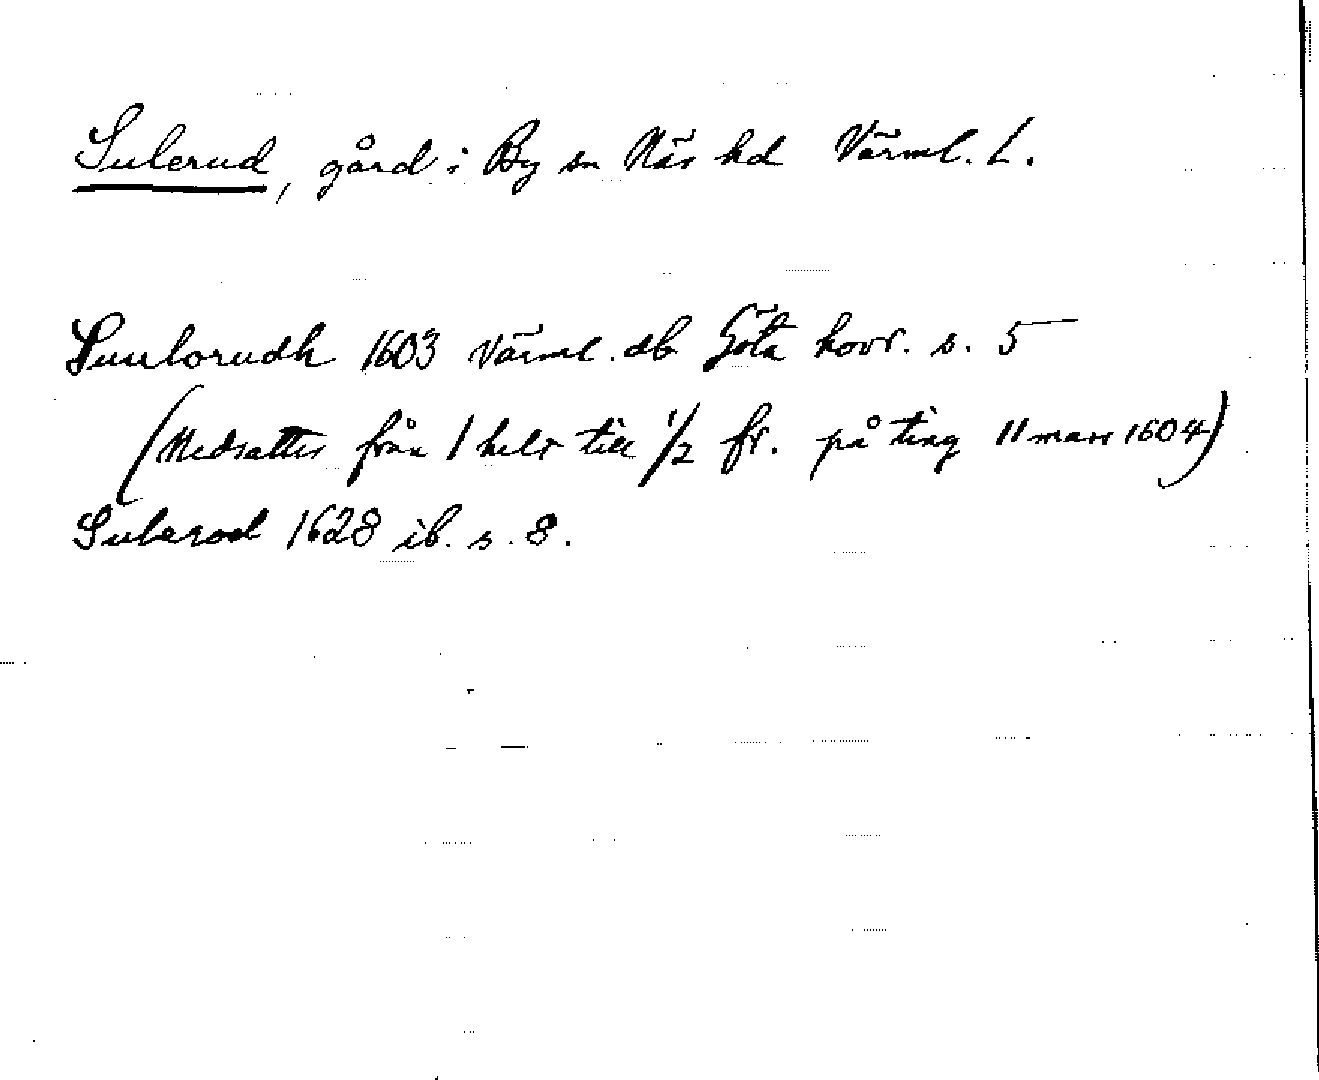 Sulerud, gård i By sn Näs hd Värml. L.
Suulorudh 1603 Värml. db Göta hovr. s. 5
(Nedsattes från 1 helt till 1/2 fr. på ting 11 mars 1604)
Sulerod 1628 ib. s. 8.